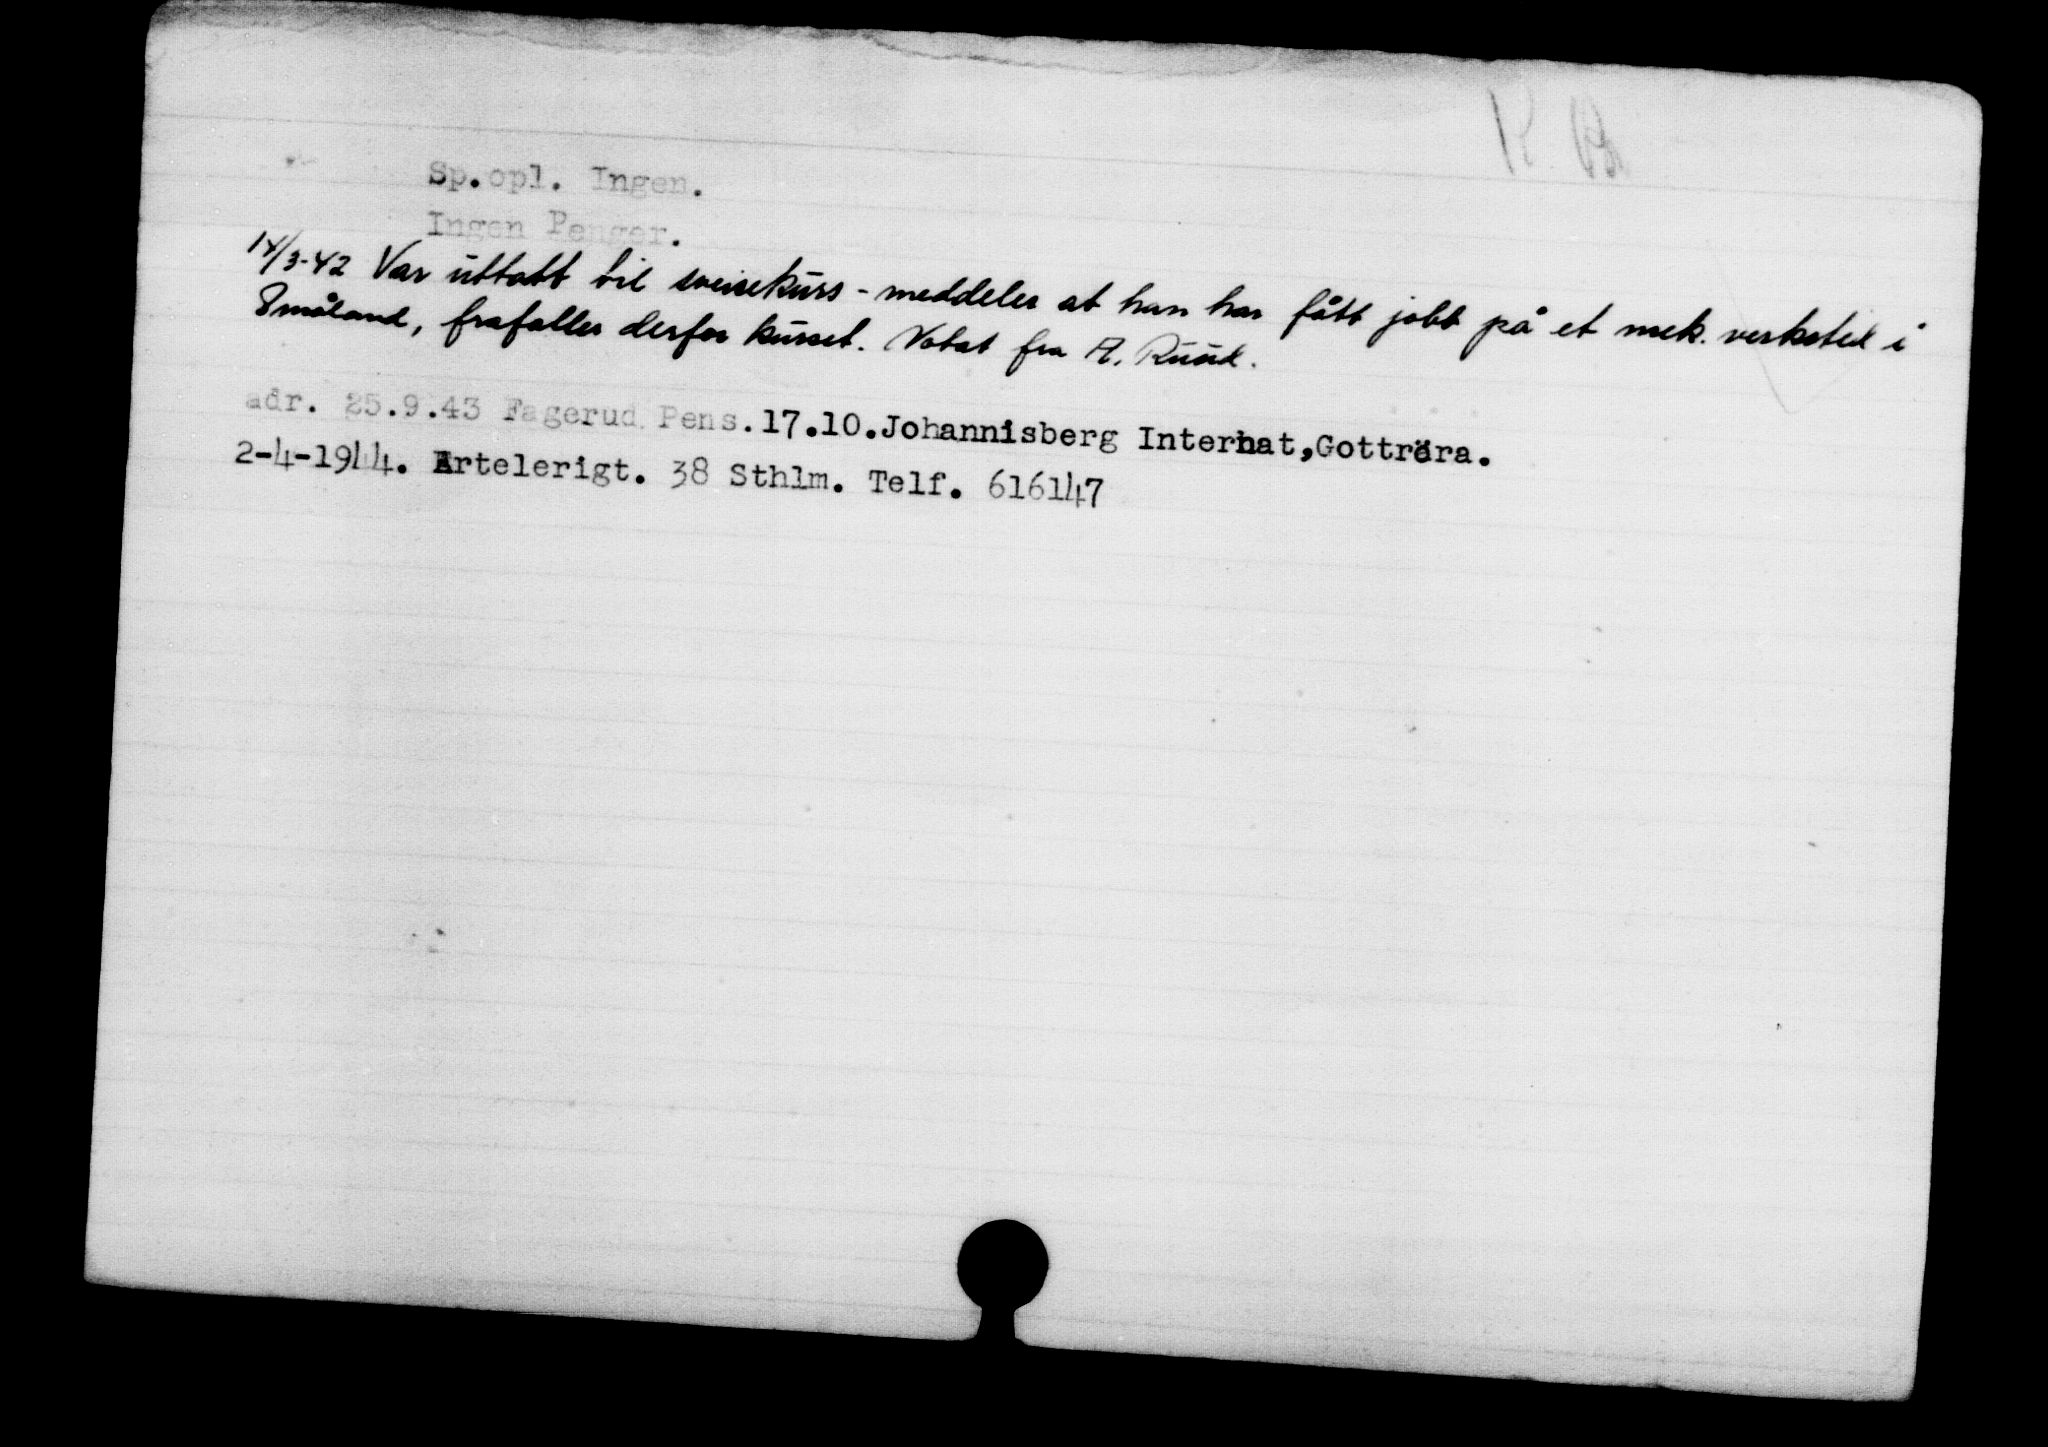 Sp.opl. Ingen.
Ingen Penger.
14/3-42 Var uttatt til sveisekurs - meddeler at han har fått jobb på et mek. verksted i
Småland, frafaller derfor kurset. Notat fra A. Ruud.
adr. 25.9.43 Fagerud Pens. 17.10. Johannisberg Internat, Gottröra.
2-4-1944. Artelerigt. 38 Sthlm. Telf. 616147